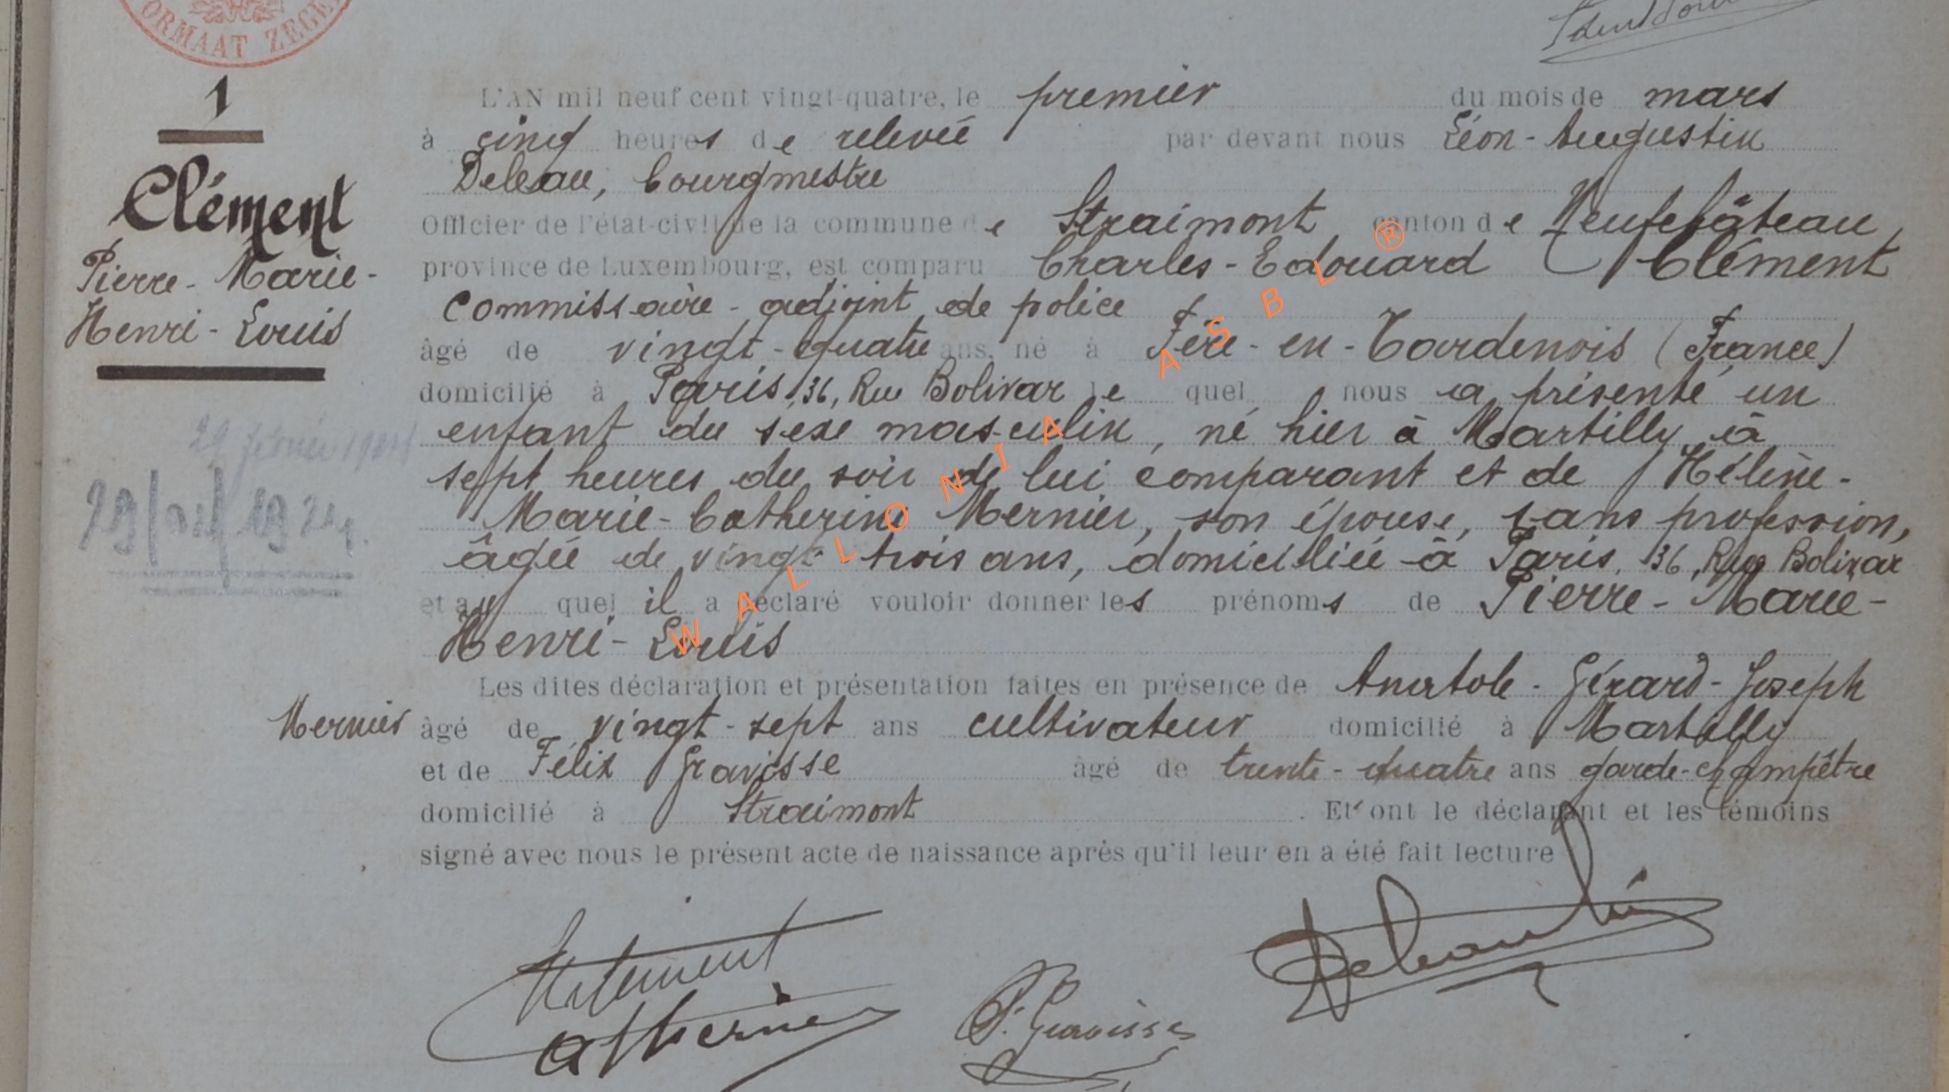 ORMAAT ZEGE
1
Clément
Pierre-Marie-
Henri-Louis
29 février 1924
29/02/1924.
L'AN mil neuf cent vingt-quatre, le premier du mois de mars
à cinq heures de relevée par devant nous Léon-Augustin
Deleau, bourgmestre
Officier de l'état-civil de la commune de Straimont, canton de Neufchâteau,
province de Luxembourg, est comparu Charles-Edouard Clément
Commissaire-adjoint de police
âgé de vingt-quatre ans, né à Fère-en-Tardenois (France)
domicilié à Paris, 36, Rue Bolivar lequel nous a présenté un
enfant du sexe masculin, né hier à Martilly, à
sept heures du soir de lui comparant et de Hélène-
Marie-Catherine Mernier, son épouse, sans profession,
âgée de vingt-trois ans, domiciliée à Paris, 36, Rue Bolivar
et auquel il a déclaré vouloir donner les prénoms de Pierre-Marie-
Henri-Louis
Les dites déclaration et présentation faites en présence de Anatole-Gérard-Joseph
Mernier âgé de vingt-sept ans cultivateur domicilié à Martilly
et de Félix Gravisse âgé de trente-quatre ans garde-champêtre
domicilié à Straimont. Et ont le déclarant et les témoins
signé avec nous le présent acte de naissance après qu'il leur en a été fait lecture
F. Gravisse
WALLONIA ASBL ®